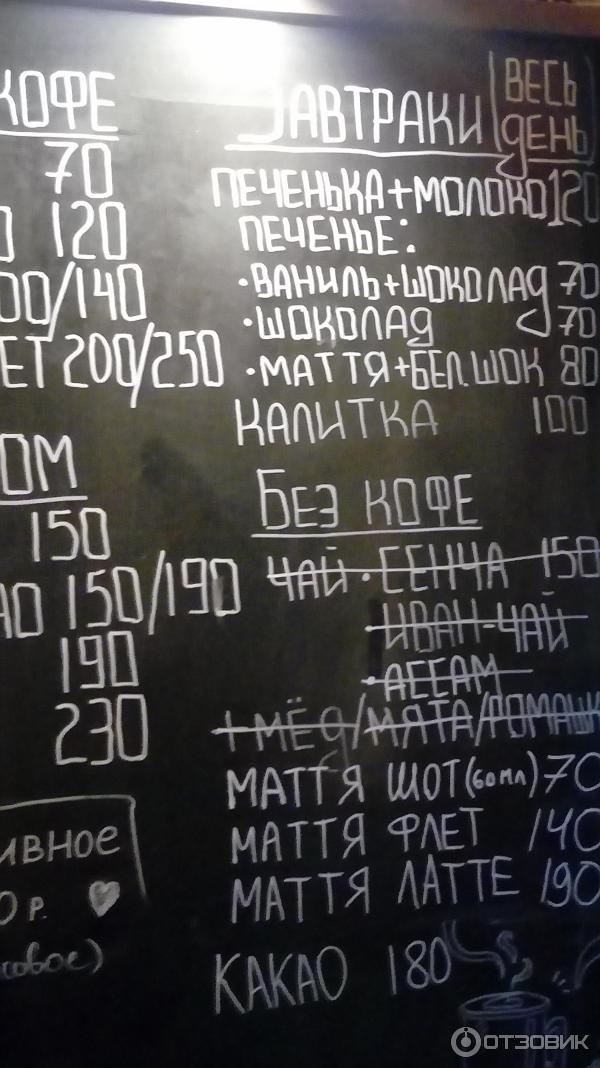 КОФЕ
70
120
/140
200/250
150
150/190
190
230
0 р. ♥
ЗАВТРАКИ (ВЕСЬ
ДЕНЬ)
ПЕЧЕНЬКА+МОЛОКО 120
ПЕЧЕНЬЕ:
•ВАНИЛЬ+ШОКОЛАД 70
•ШОКОЛАД 70
•МАТТЯ+БЕЛ.ШОК 80
КАЛИТКА 100
БЕЗ КОФЕ
ЧАЙ •СЕНЧА 150
•ИВАН-ЧАЙ
•АССАМ
+МЁД/МЯТА/РОМАШК
МАТТЯ ШОТ(60мл) 70
МАТТЯ ФЛЕТ 140
МАТТЯ ЛАТТЕ 190
КАКАО 180
ОТЗОВИК